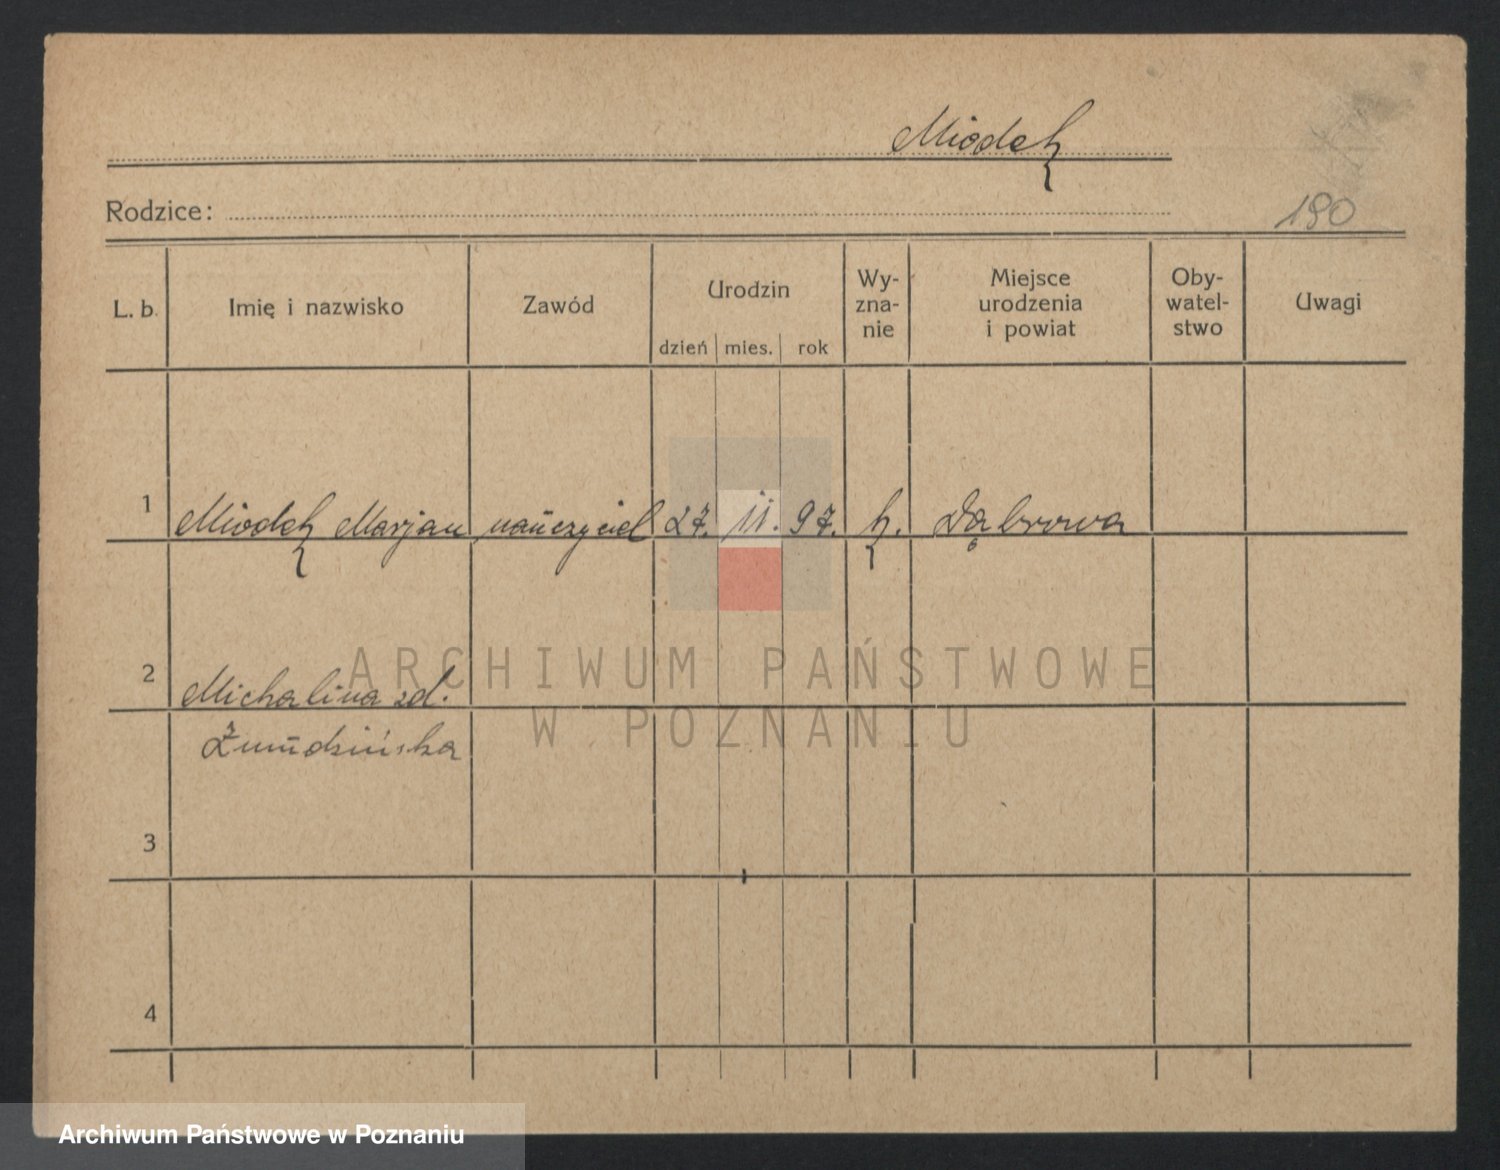 Miodek
Rodzice:
190
L. b.
Imię i nazwisko
Zawód
Urodzin
dzień mies. rok
Wy-
zna-
nie
Miejsce
urodzenia
i powiat
Oby-
watel-
stwo
Uwagi
1 Miodek Marjan nauczyciel 27. 11. 97. k. Dąbrowa
2 Michalina zd.
Żmudzińska
3
4
ARCHIWUM PAŃSTWOWE
W POZNANIU
Archiwum Państwowe w Poznaniu